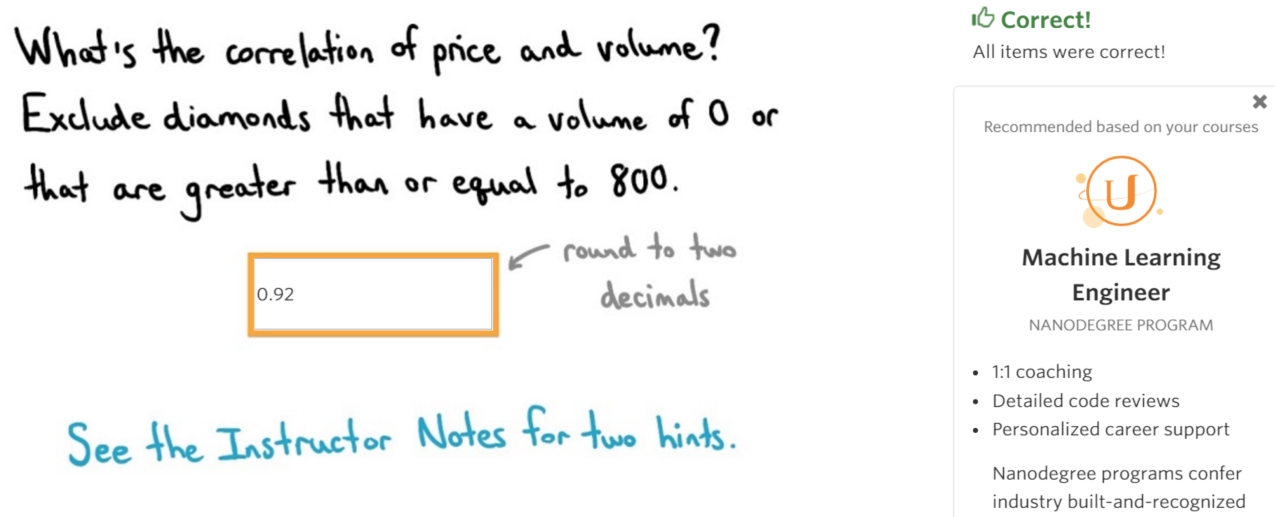 What's the correlation of price and volume?
Exclude diamonds that have a volume of 0 or
that are greater than or equal to 800.
0.92
round to two
decimals
See the Instructor Notes for two hints.
Correct!
All items were correct!
Recommended based on your courses
U
Machine Learning
Engineer
NANODEGREE PROGRAM
• 1:1 coaching
• Detailed code reviews
• Personalized career support
Nanodegree programs confer
industry built-and-recognized